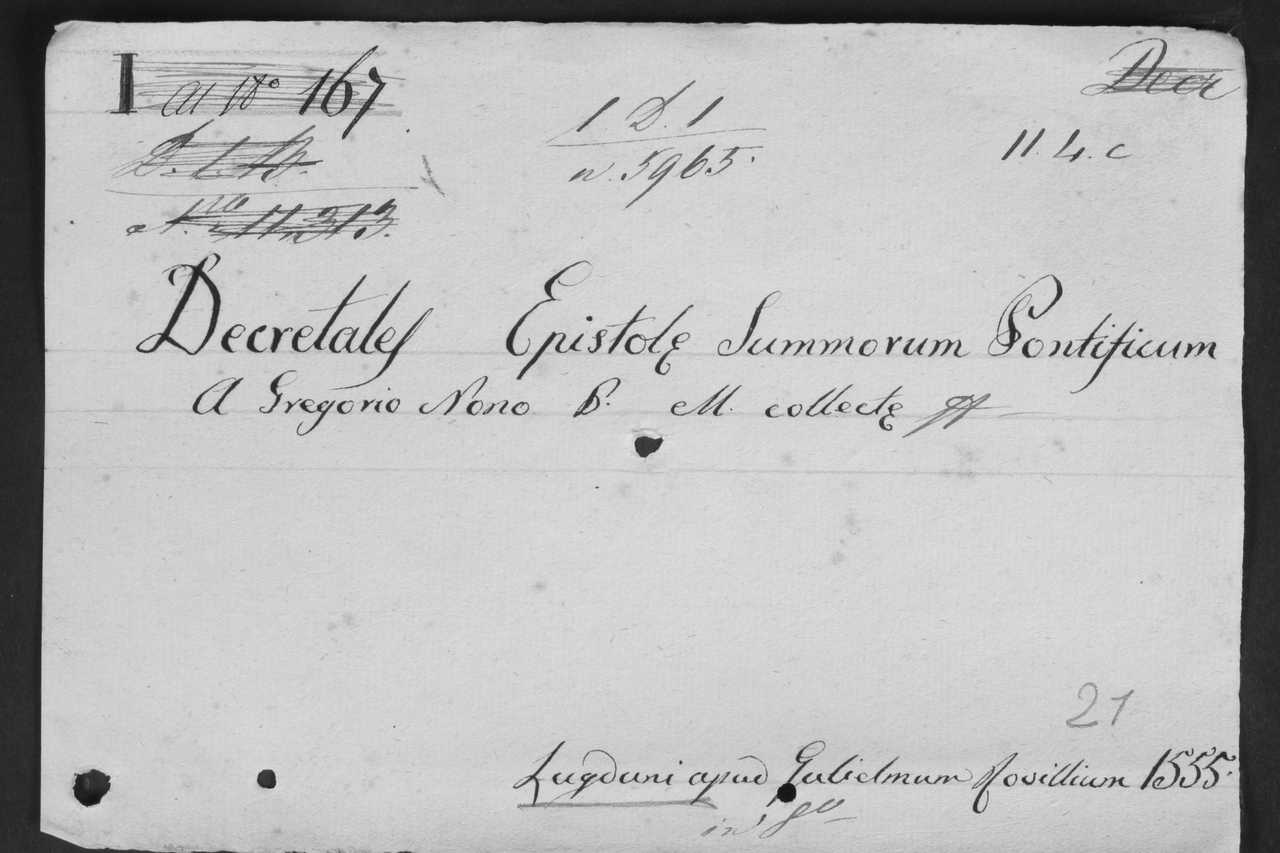 I 167 Decr
1. D. 1
11. 4. c
n. 5965.
Nro 11313.
Decretales Epistolę Summorum Pontificum
A Gregorio Nono P. M. collectę
21
Lugduni apud Gulielmum Rovillium 1555.
in 8vo